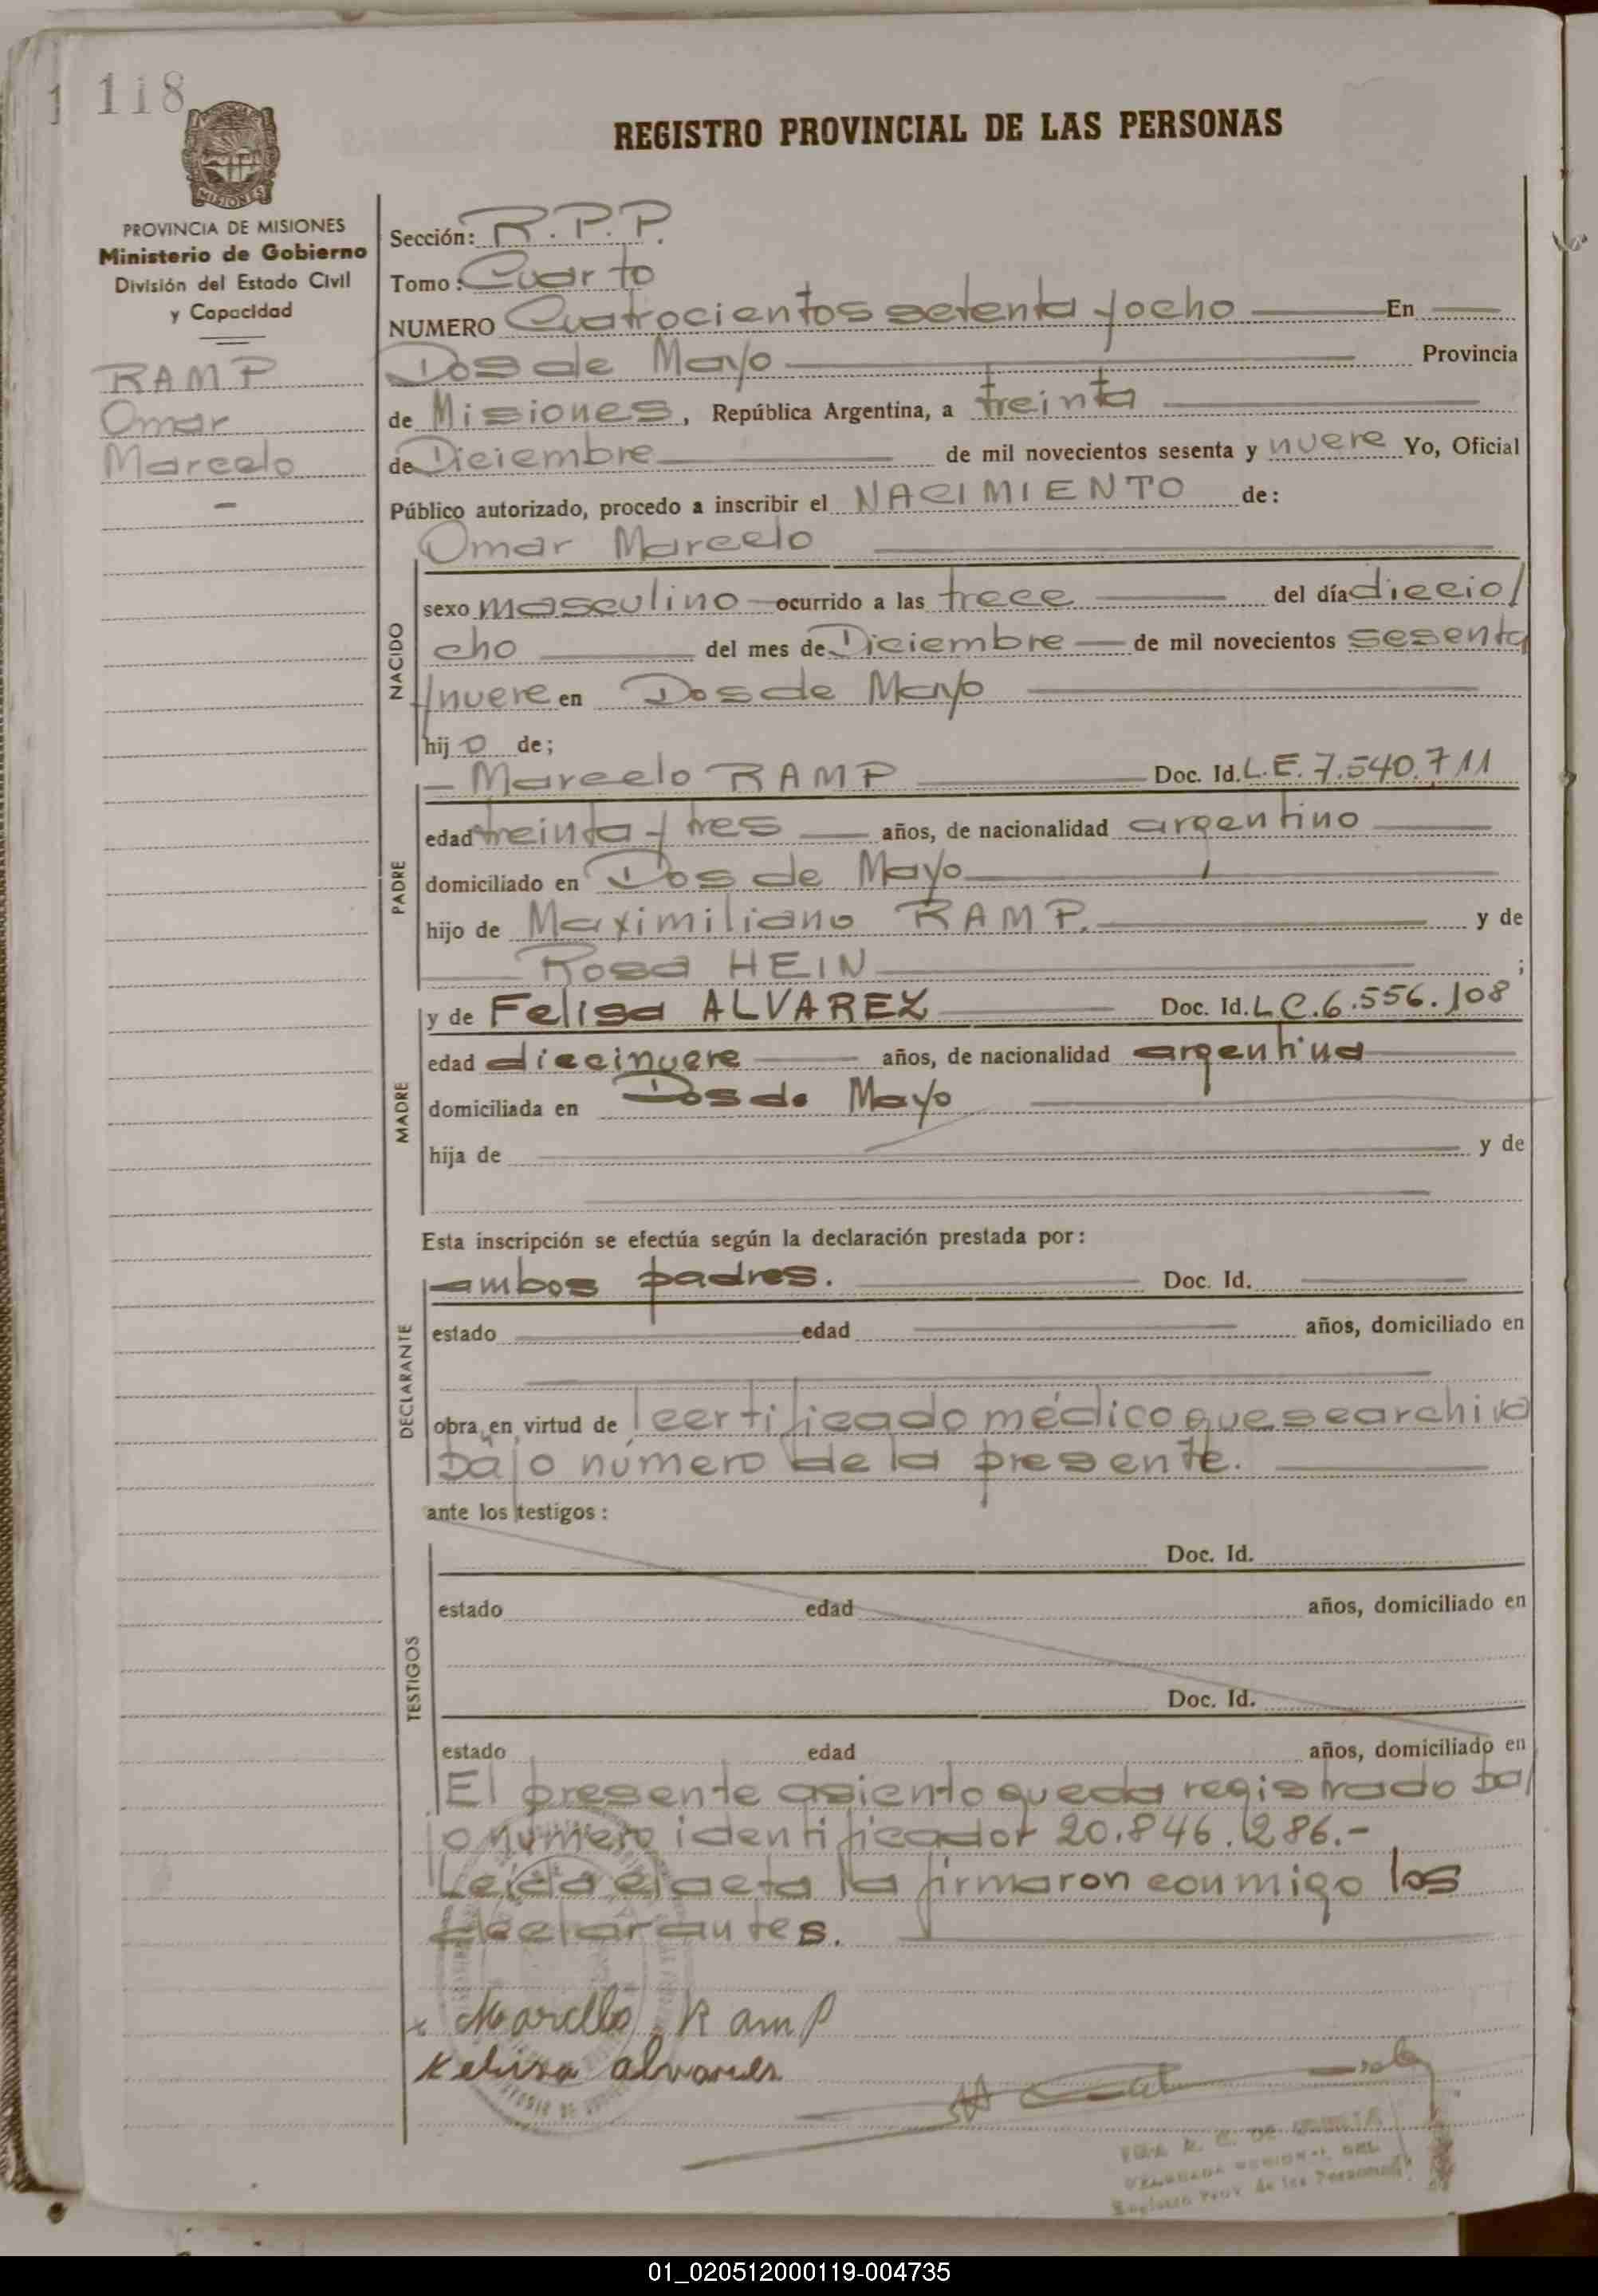 118
REGISTRO PROVINCIAL DE LAS PERSONAS
MISIONES
PROVINCIA DE MISIONES
Ministerio de Gobierno
División del Estado Civil
y Capacidad
RAMP
Omar
Marcelo
Sección: R.P.P.
Tomo: Cuarto
NUMERO Cuatrocientos setenta y ocho En
Dos de Mayo Provincia
de Misiones, República Argentina, a treinta
de Diciembre de mil novecientos sesenta y nueve Yo, Oficial
Público autorizado, procedo a inscribir el NACIMIENTO de:
Omar Marcelo
NACIDO
sexo masculino ocurrido a las trece del día diecio/
cho del mes de Diciembre de mil novecientos sesenta
y nueve en Dos de Mayo
hij o de;
PADRE
- Marcelo RAMP Doc. Id. L.E. 7.540.711
edad treinta y tres años, de nacionalidad argentino
domiciliado en Dos de Mayo
hijo de Maximiliano RAMP. y de
Rosa HEIN ;
MADRE
y de Felisa ALVAREZ Doc. Id. L.C. 6.556.108
edad diecinueve años, de nacionalidad argentina
domiciliada en Dos de Mayo
hija de y de
Esta inscripción se efectúa según la declaración prestada por:
DECLARANTE
ambos padres. Doc. Id.
estado edad años, domiciliado en
obra en virtud de certificado médico que se archiva
bajo número de la presente.
ante los testigos:
TESTIGOS
Doc. Id.
estado edad años, domiciliado en
Doc. Id.
estado edad años, domiciliado en
El presente asiento queda registrado ba/
jo número identificador 20.846.286.-
Leída el acta la firmaron conmigo los
declarantes.
x Marcelo Ramp
Felisa alvares
Registro Prov. de las Personas
01_020512000119-004735